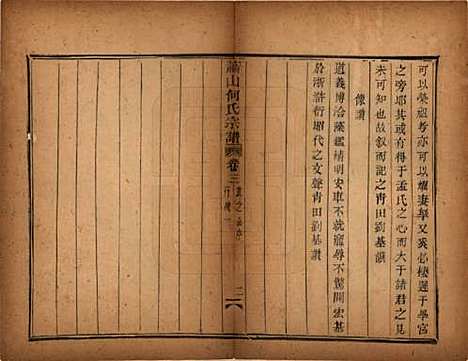 可以榮祖考亦可以燿妻孥又奚必棲遲于學宮
之旁耶其或有得于孟氏之心而大于諸君之見
未可知也故敘而記之青田劉基
像讚
道義博洽藻鑑禧明安車不就寵辱不驚開宏基
於浙滸衍昭代之文聲青田劉基讚
蕭山何氏宗譜
卷三
二